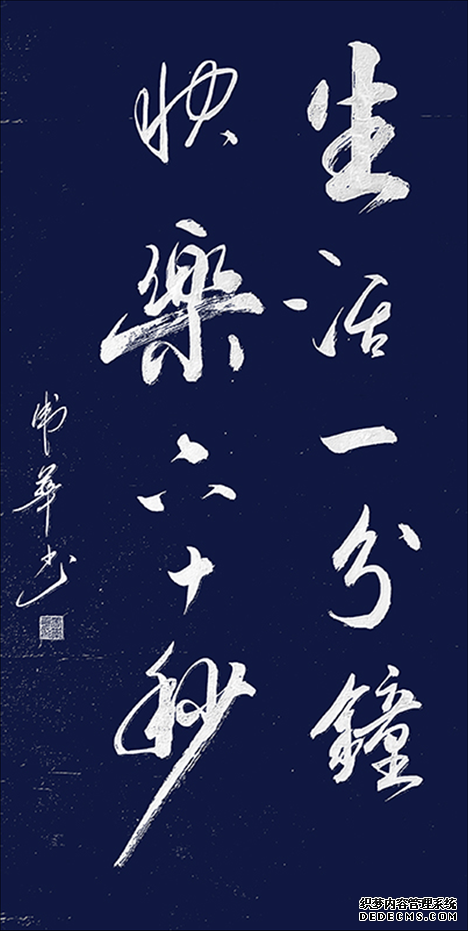 生活一分鐘
快樂六十秒
華书
织梦内容管理系统
DEDECMS.COM